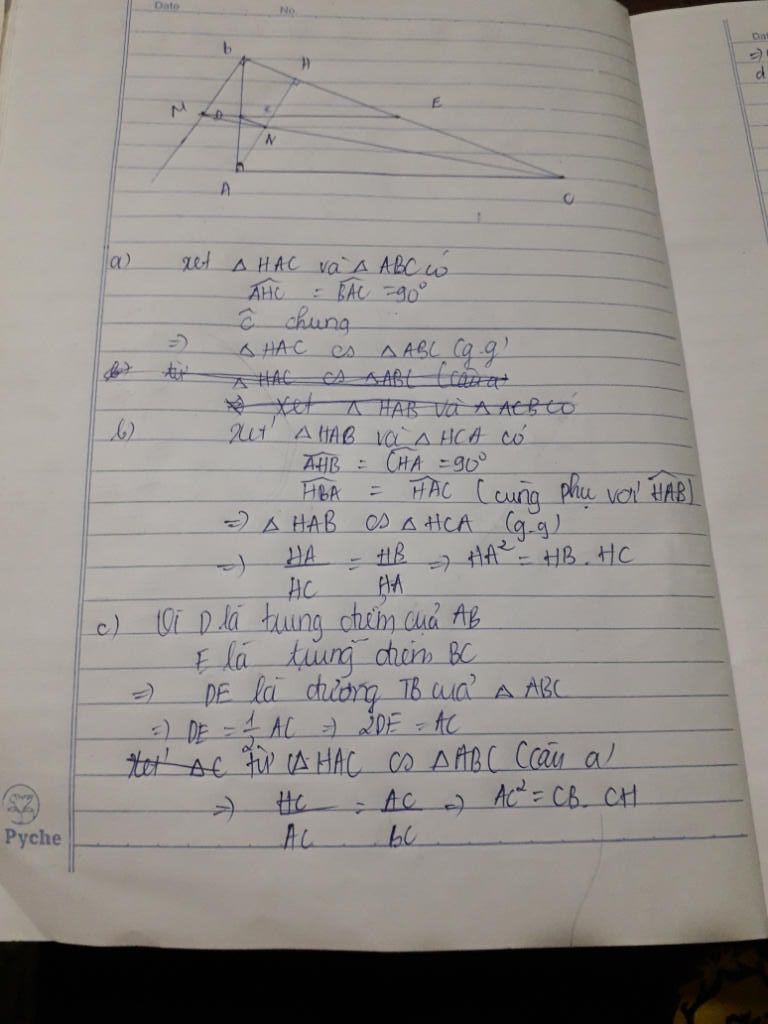 Date No.
B
H
M D E
N
A
C
a) xét △ HAC và △ ABC có
AHC = BAC = 90°
C chung
=> △ HAC ∽ △ ABC (g.g)
b) từ △ HAC ∽ △ ABC (câu a
=> xét △ HAB và △ ACB có
b) Xét △ HAB và △ HCA có
AHB = CHA = 90°
HBA = HAC (cùng phụ với HAB)
=> △ HAB ∽ △ HCA (g-g)
=> HA/HC = HB/HA => HA² = HB. HC
c) Vì D là trung điểm của AB
E là trung điểm BC
=> DE là đường TB của △ ABC
=> DE = 1/2 AC => 2DE = AC
Xét △C từ △ HAC ∽ △ ABC (câu a)
=> HC/AC = AC/BC => AC² = CB. CH
Pyche
Dat
=>
d